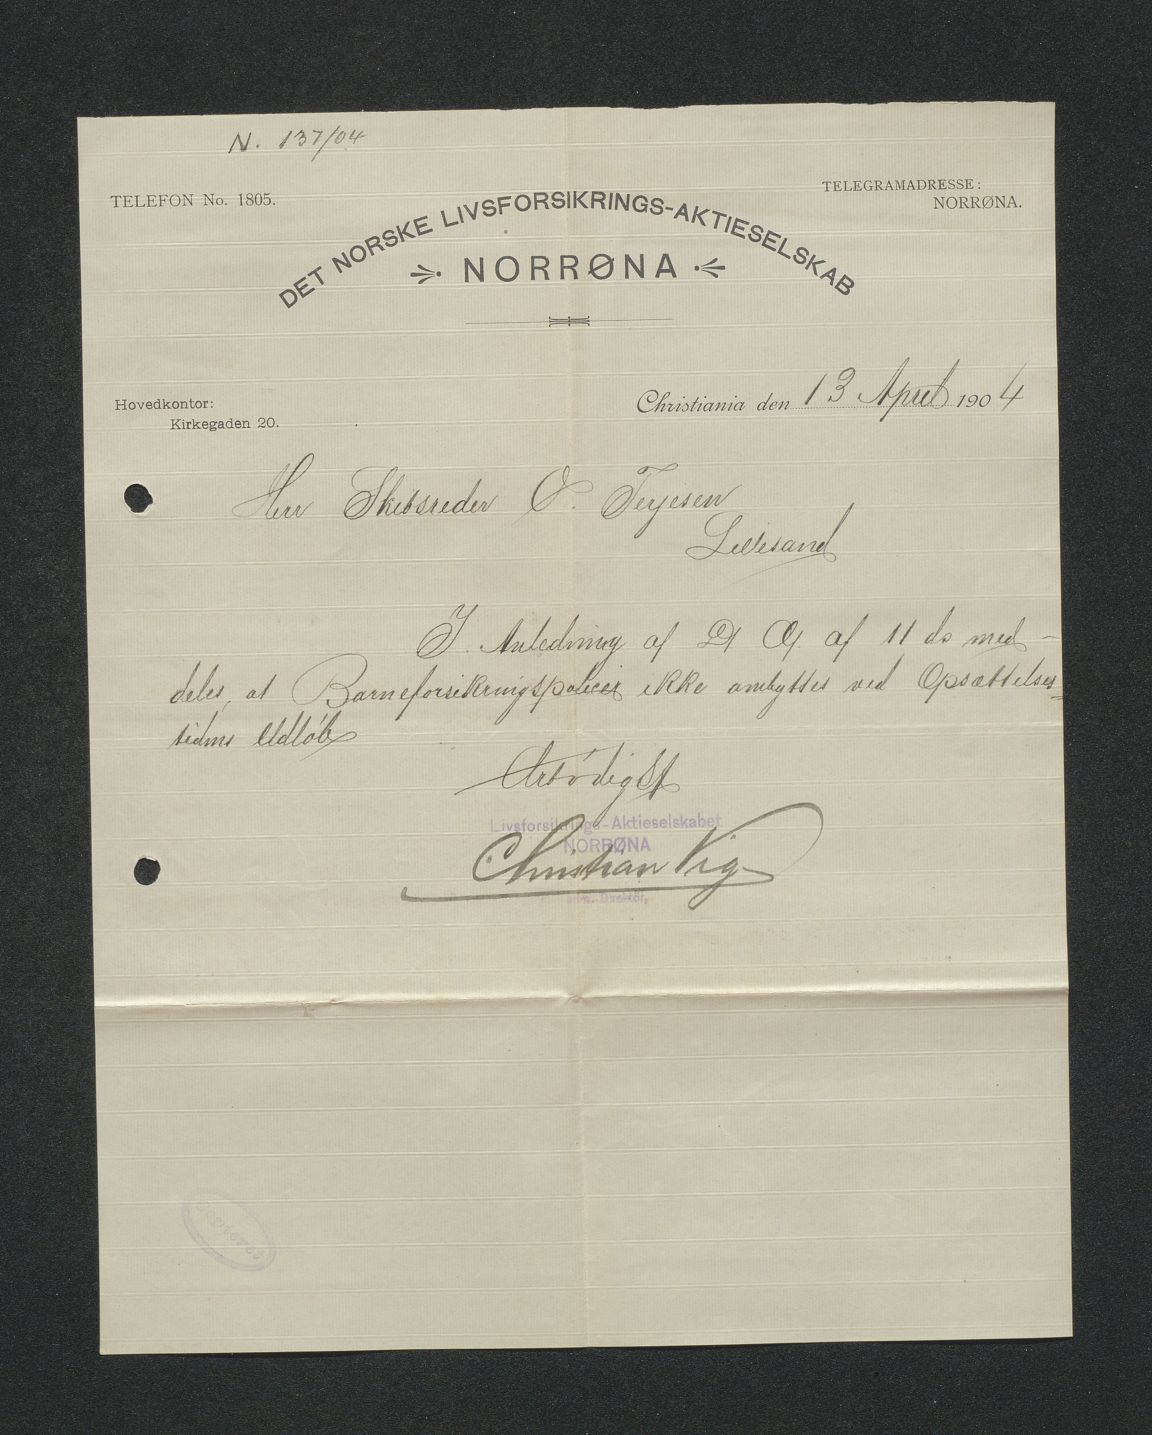 N. 137/04
TELEFON No. 1805.
TELEGRAMADRESSE:
NORRØNA.
DET NORSKE LIVSFORSIKRINGS-AKTIESELSKAB
NORRØNA
Hovedkontor:
Kirkegaden 20.
Christiania den 13 April 1904
Herr Skibsreder O. Terjesen
Lillesand
I Anledning af af 11 ds med-
deles, at Barneforsikringspolicer ikke ombyttes ved Opsættelses-
tidens Udløb
Ærbødigst
Livsforsikrings-Aktieselskabet
NORRØNA
Christian Vig
adm. Direktør,